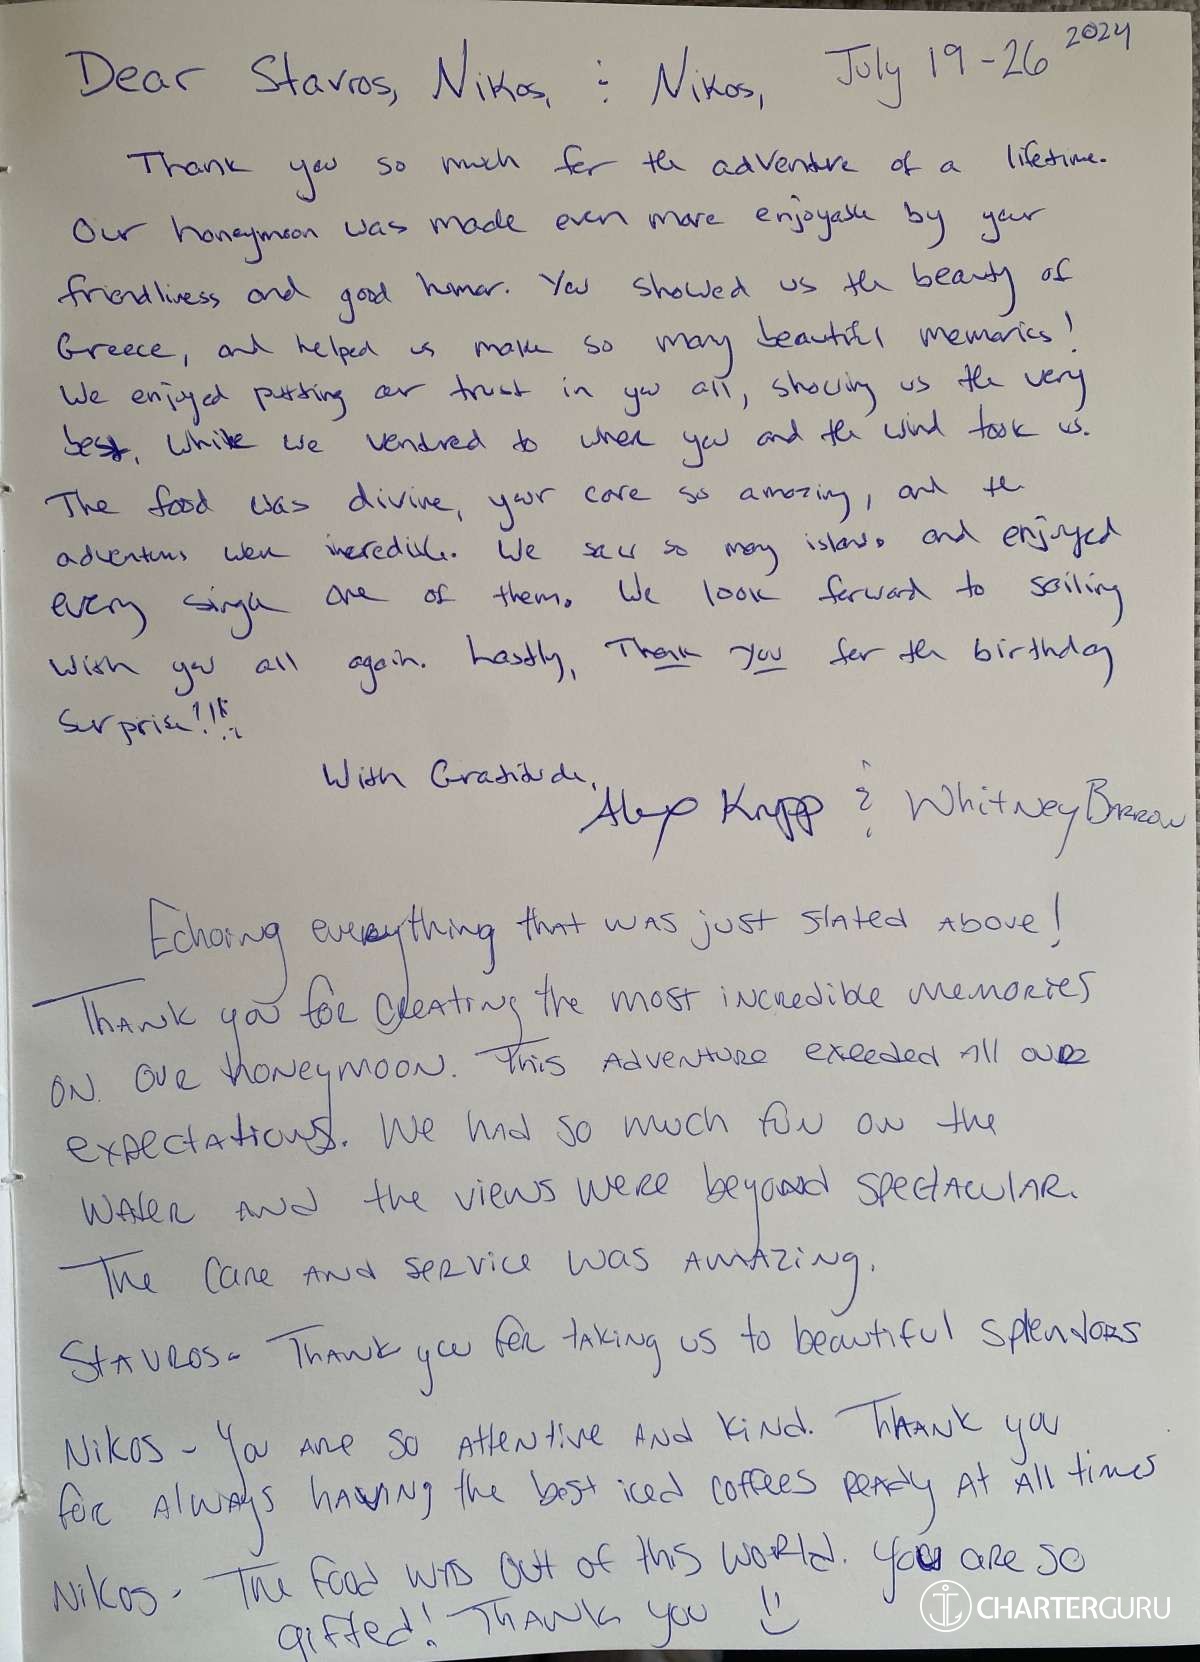 Dear Stavros, Nikos, & Nikos, July 19-26 2024
Thank you so much for the adventure of a lifetime.
Our honeymoon was made even more enjoyable by your
friendliness and good humor. You showed us the beauty of
Greece, and helped us make so many beautiful memories!
We enjoyed putting our trust in you all, showing us the very
best, while we ventured to where you and the wind took us.
The food was divine, your care so amazing, and the
adventures were incredible. We saw so many islands and enjoyed
every single one of them. We look forward to sailing
with you all again. Lastly, Thank you for the birthday
surprise!!!
With Gratitude,
Alex & Whitney Barrow
Echoing everything that was just stated above!
Thank you for creating the most incredible memories
on our honeymoon. This adventure exeeded all our
expectations. We had so much fun on the
water and the views were beyond spectacular.
The care and service was amazing.
Stavros - Thank you for taking us to beautiful splendors
Nikos - You are so attentive and kind. Thank you
for always having the best iced coffees ready at all times
Nikos - The food was out of this world. you are so
gifted! Thank you :)
CHARTERGURU